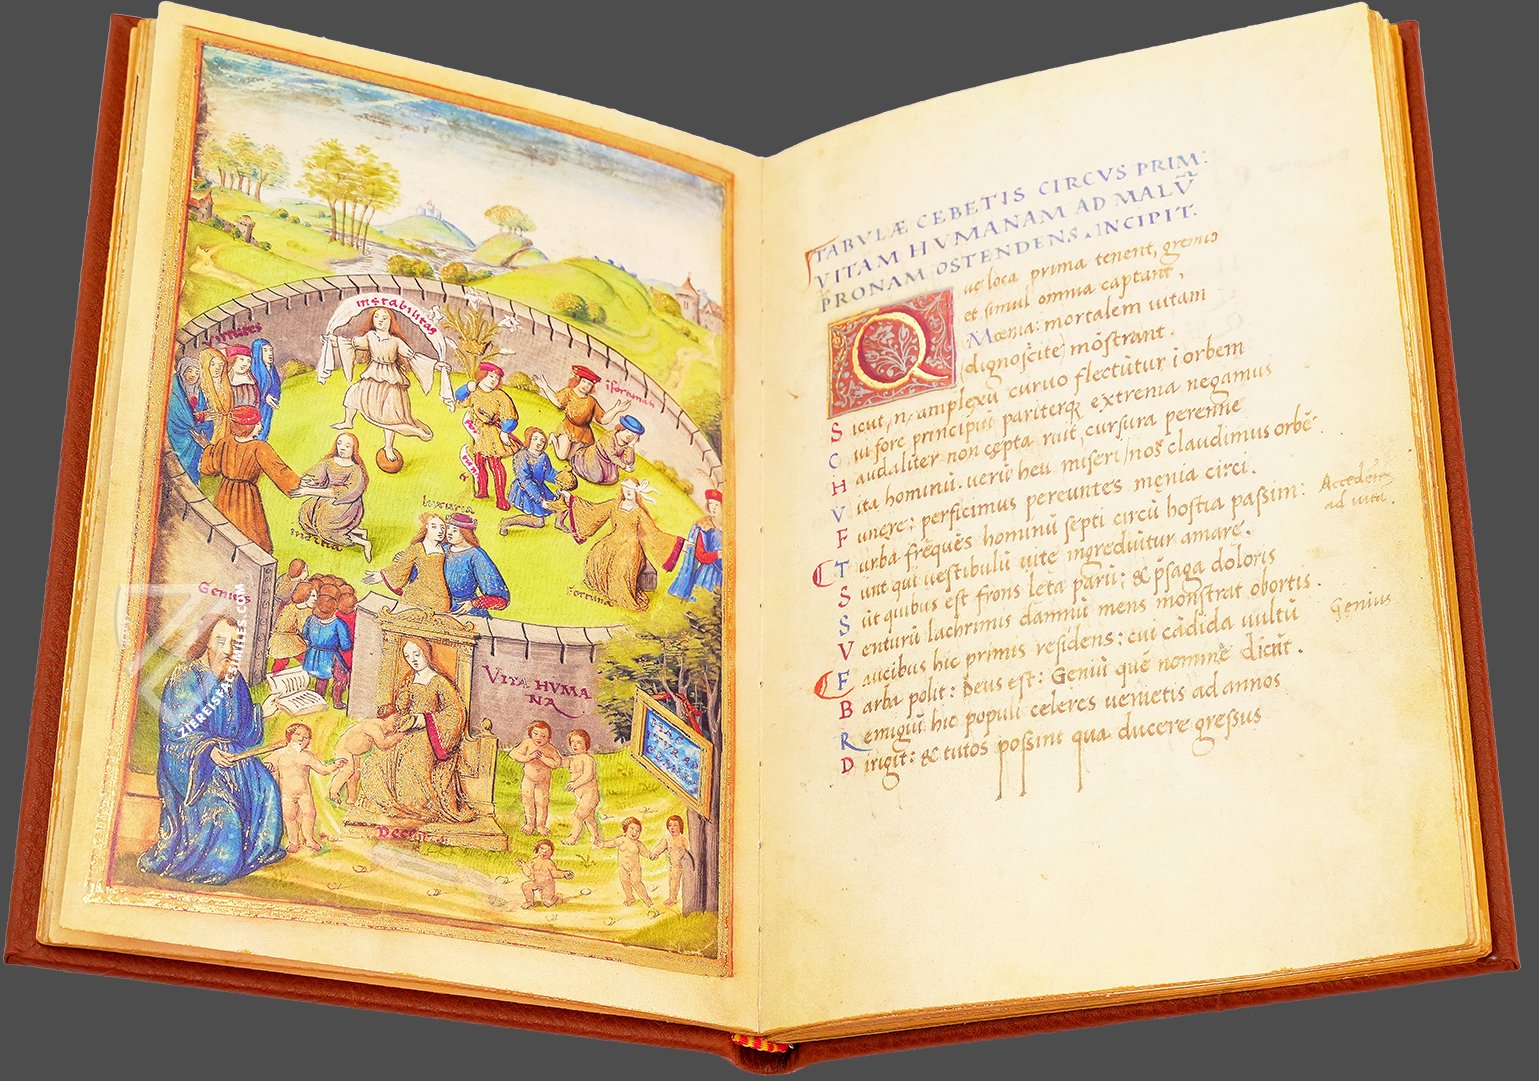 mutabilitas
Virtutes
ifortunati
luxuria
Fortuna
Genius
VITA HUMA
NA
ZIEREISFACSIMILES.COM
TABVLÆ CEBETIS CIRCVS PRIM:
VITAM HVMANAM AD MALV̄
PRONAM OSTENDENS. INCIPIT.
Que loca prima tenent, gremio
et simul omnia captant,
Mœnia: mortalem uitam
(dignoscite) mōstrant.
Sicut, n, amplexū curuo flectūtur ī orbem
Cui fore principiū pariterq; extrema negamus
Haudaliter non cępta ruit, cursura perenne
Vita hominū. uerū heu miseri nos claudimus orbē.
Funere: perficimus pereuntes menia circi.
Turba frequēs hominū septi circū hostia passim:
Sunt qui uestibulū uite ingrediūtur amare.
Sūt quibus est frons leta parū: & p̄saga doloris
Venturū lachrimis damnū mens monstrat obortis.
Faucibus hic primus residens: cui cādida uultū
Barba polit: Deus est: Geniū quē nomine dicūt.
Remigiū hic populi celeres uenietis ad annos
Dirigit: & tutos possint qua ducere gressus
Accedentes
ad uita.
Genius